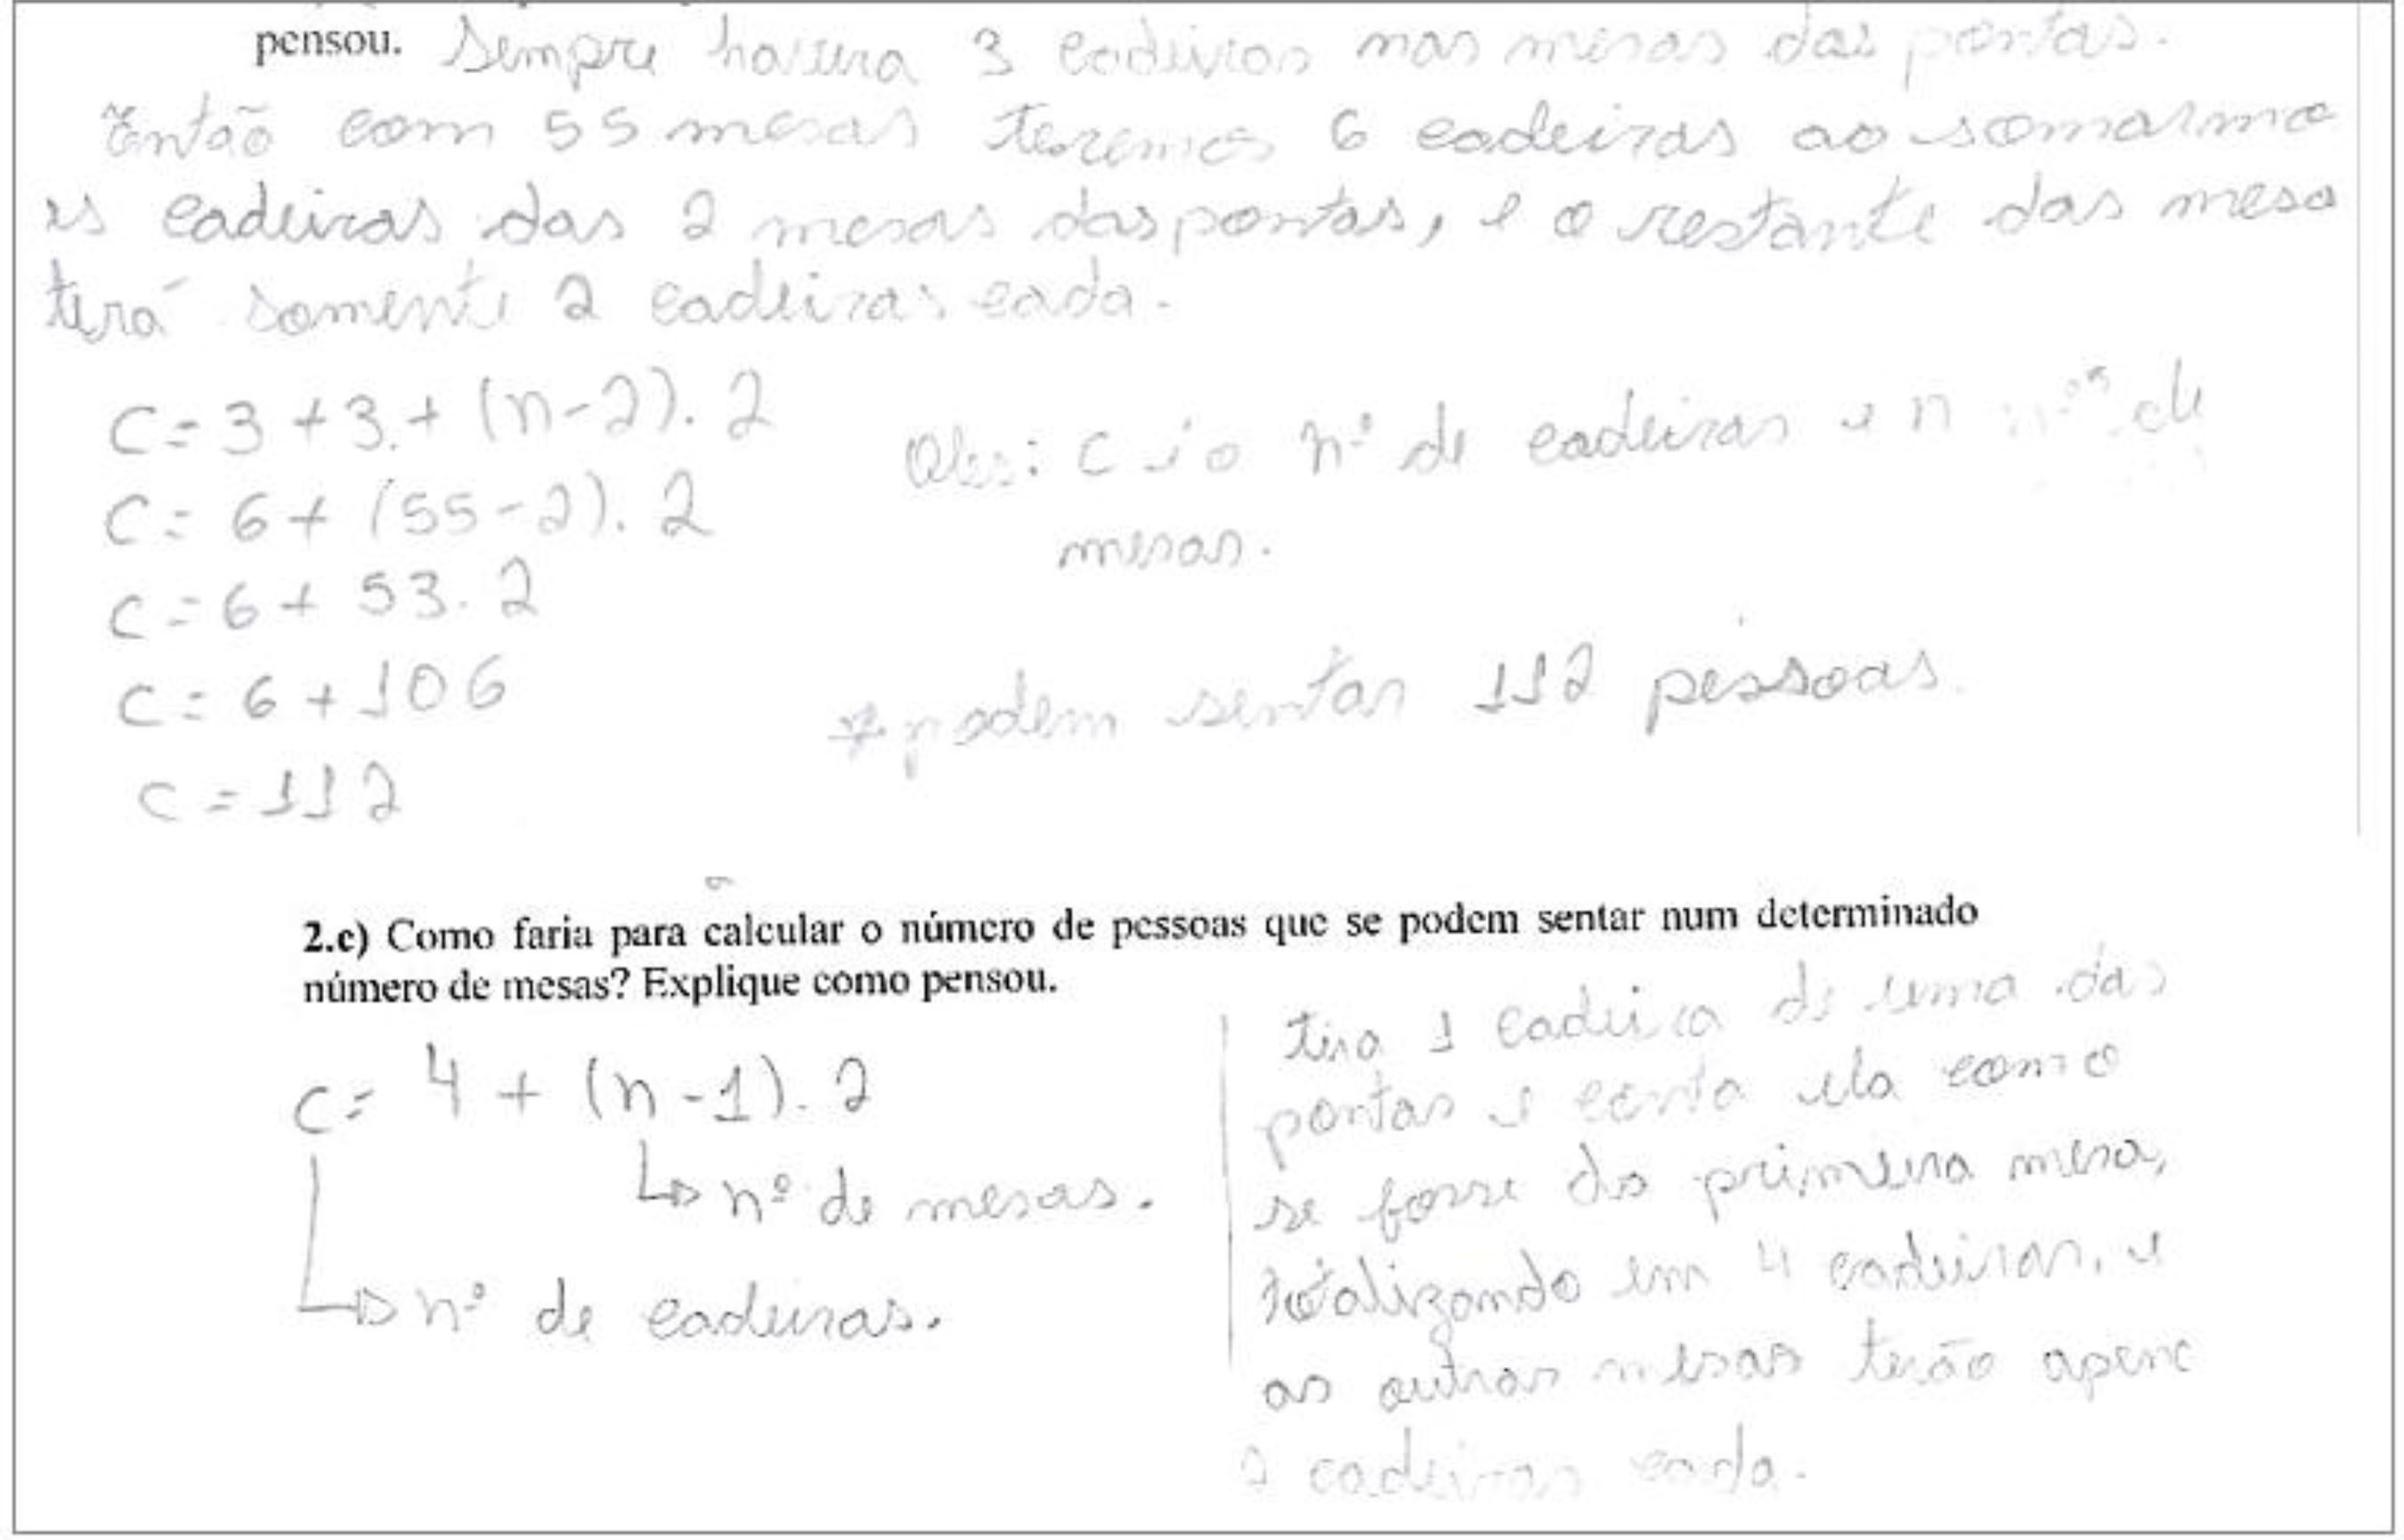 pensou. Sempre havera 3 cadeiras nas mesas das pontas.
Então com 55 mesas teremos 6 cadeiras ao somarmo
as cadeiras das 2 mesas das pontas, e o restante das mesa
terá somente 2 cadeiras cada.
C = 3 + 3 + (n-2). 2
Obs: C é o nº de cadeiras e n nºs de
mesas.
C = 6 + (55-2). 2
C = 6 + 53. 2
C = 6 + 106
* podem sentar 112 pessoas.
C = 112
2.c) Como faria para calcular o número de pessoas que se podem sentar num determinado
número de mesas? Explique como pensou.
C = 4 + (n-1). 2
↳ nº de mesas.
↳ nº de cadeiras.
tira 1 cadeira de uma das
pontas e conta ela como
se fosse da primeira mesa,
totalizando em 4 cadeiras, e
as outras mesas terão apena
cadeiras cada.